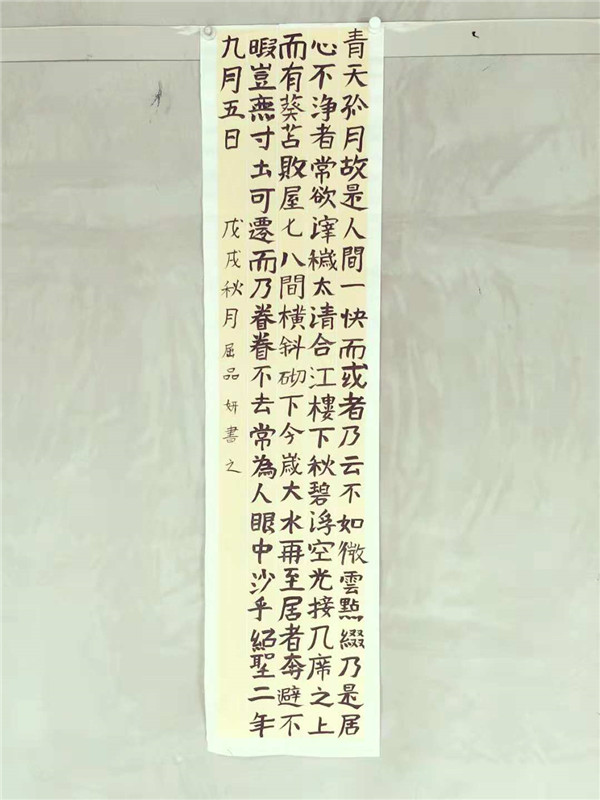 青天孤月故是人間一快而或者乃云不如微雲點綴乃是居
心不浄者常欲滓穢太清合江樓下秋碧浮空光接几席之上
而有葵苫敗屋七八間橫斜砌下今歲大水再至居者奔避不
暇豈無寸土可遷而乃眷眷不去常為人眼中沙乎紹聖二年
九月五日 戊戌秋月屈品妍書之